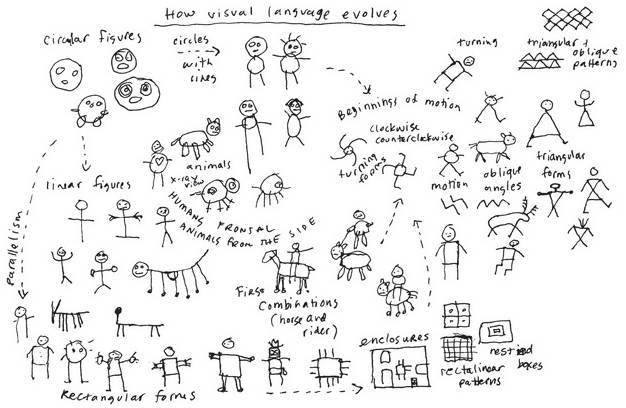 How visual language evolves
circular figures
circles
with
lines
turning
triangular +
oblique
patterns
Beginnings of motion
clockwise
counterclockwise
turning
forms
animals
x-ray
view
linear figures
HUMANS, FRONTAL
ANIMALS FROM THE SIDE
motion
oblique
angles
triangular
forms
Parallelism
First
Combinations
(horse and
rider)
enclosures
nested
boxes
rectalinear
patterns
Rectangular forms